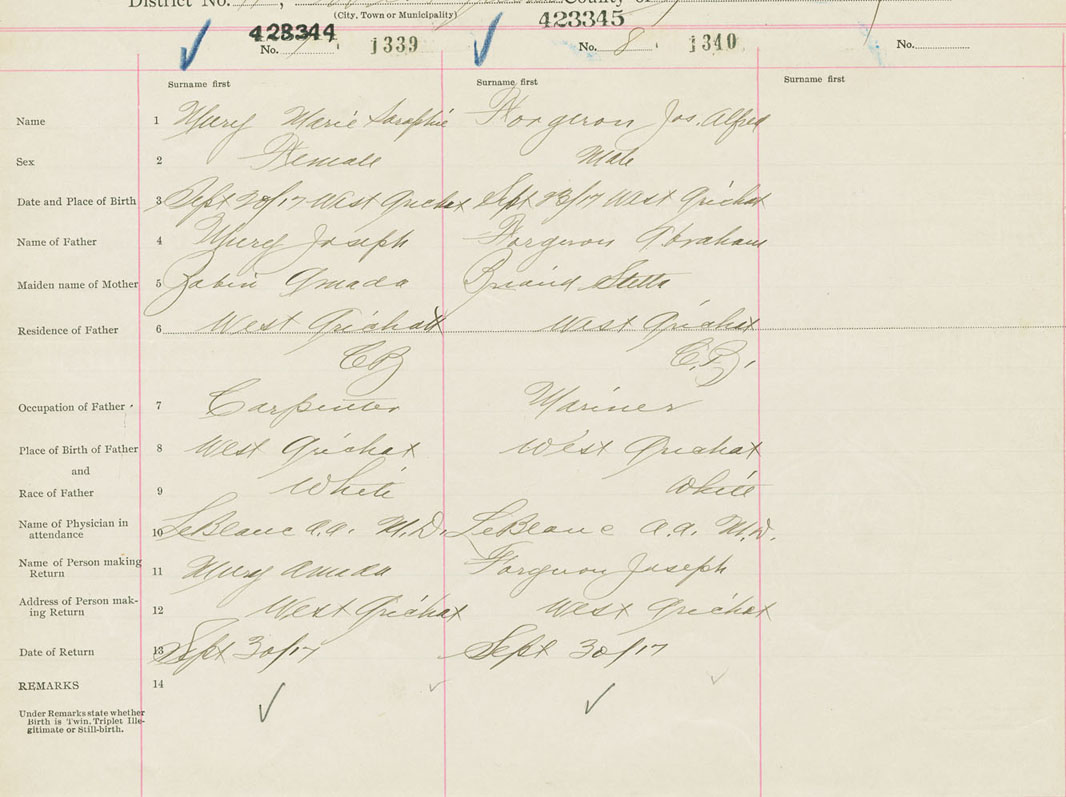 District No. County of
(City, Town or Municipality)
428344 423345
No. 7 1339 No. 8 1340 No.
Surname first Surname first Surname first
Name 1 Mury Marie Saraphie Forgeron Jos. Alfred
Sex 2 Female Male
Date and Place of Birth 3 Sept /17 West Arichat Sept 28/17 West Arichat
Name of Father 4 Mury Joseph Forgeron Abraham
Maiden name of Mother 5 Babin Amada Briand Stella
Residence of Father 6 West Arichat West Arichat
CB C.B.
Occupation of Father 7 Carpenter Mariner
Place of Birth of Father 8 West Arichat West Arichat
and
Race of Father 9 White White
Name of Physician in
attendance 10 LeBlanc A.A. M.D. LeBlanc A.A. M.D.
Name of Person making
Return 11 Mury Amada Forgeron Joseph
Address of Person mak-
ing Return 12 West Arichat West Arichat
Date of Return 13 Sept 30/17 Sept 30/17
REMARKS 14
Under Remarks state whether
Birth is Twin, Triplet Ille-
gitimate or Still-birth.